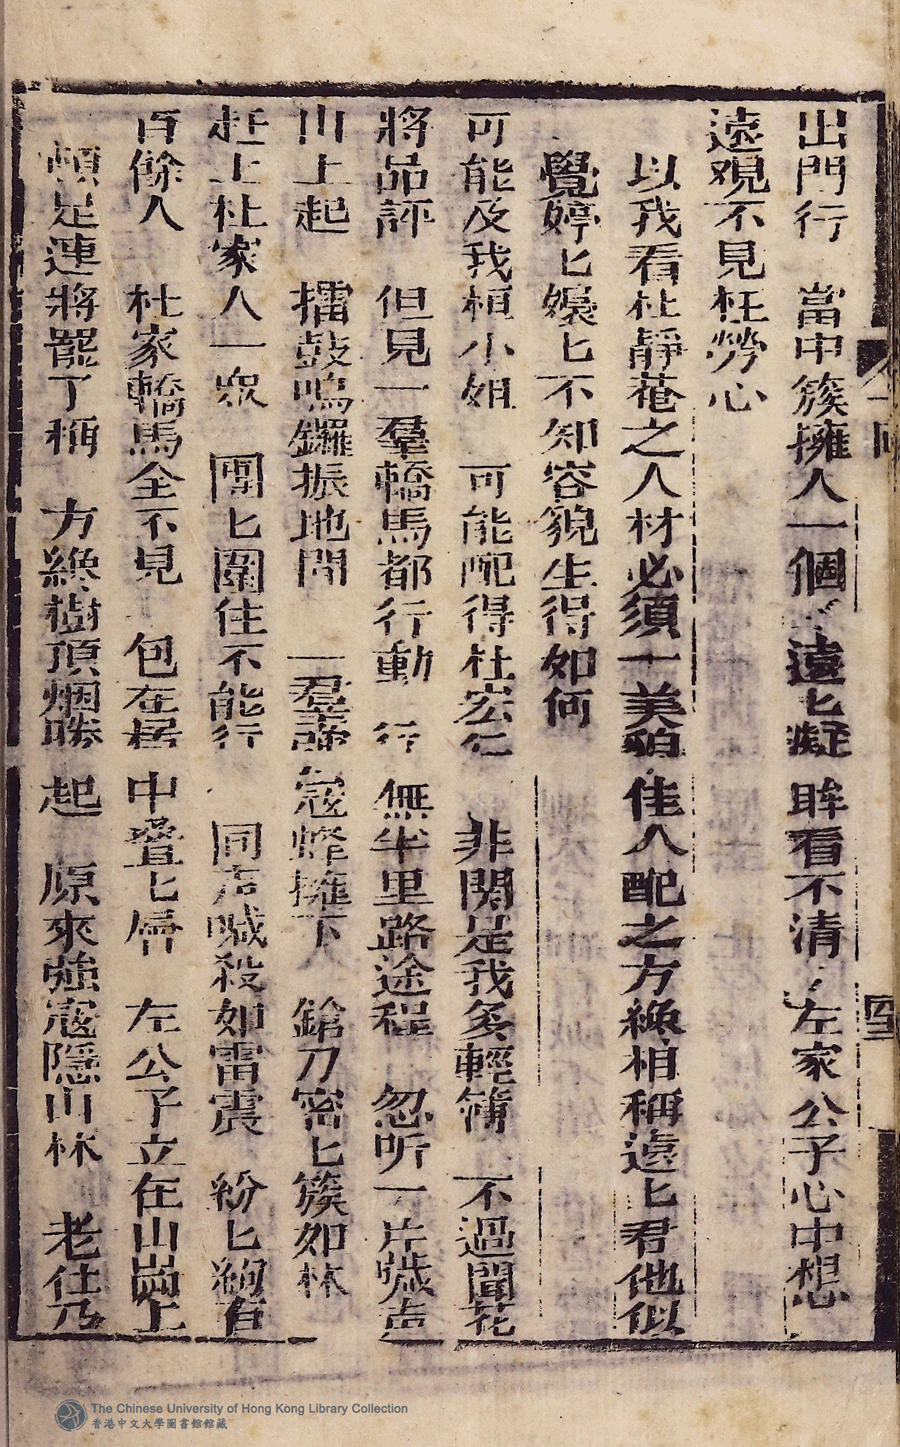 出門行　當中簇擁人一個　遠匕凝眸看不清　左家公子心中想
遠观不見枉勞心
以我看杜靜菴之人材必須一美貌佳人配之方纔相稱遠匕君他似
覺婷匕嬝匕不知容貌生得如何
可能及我桓小姐　可能配得杜宏仁　非関是我多輕簿　不過聞花
將品評　但見一羣轎馬都行動　行無半里路途程　忽听一片喊声
山上起　擂鼓鳴鑼振地間　一羣寇蜂擁下　鎗刀密匕簇如林
赶上杜家人一眾　團匕圍住不能行　同声喊殺如雷震　紛匕約有
百餘人　杜家轎馬全不見　包在居中叠匕層　左公子立在山崗上
頓足連將罷了稱　方纔樹頂烟勝起　原來強寇隱山林　老仕乃
四
The Chinese University of Hong Kong Library Collection
香港中文大學圖書館館藏